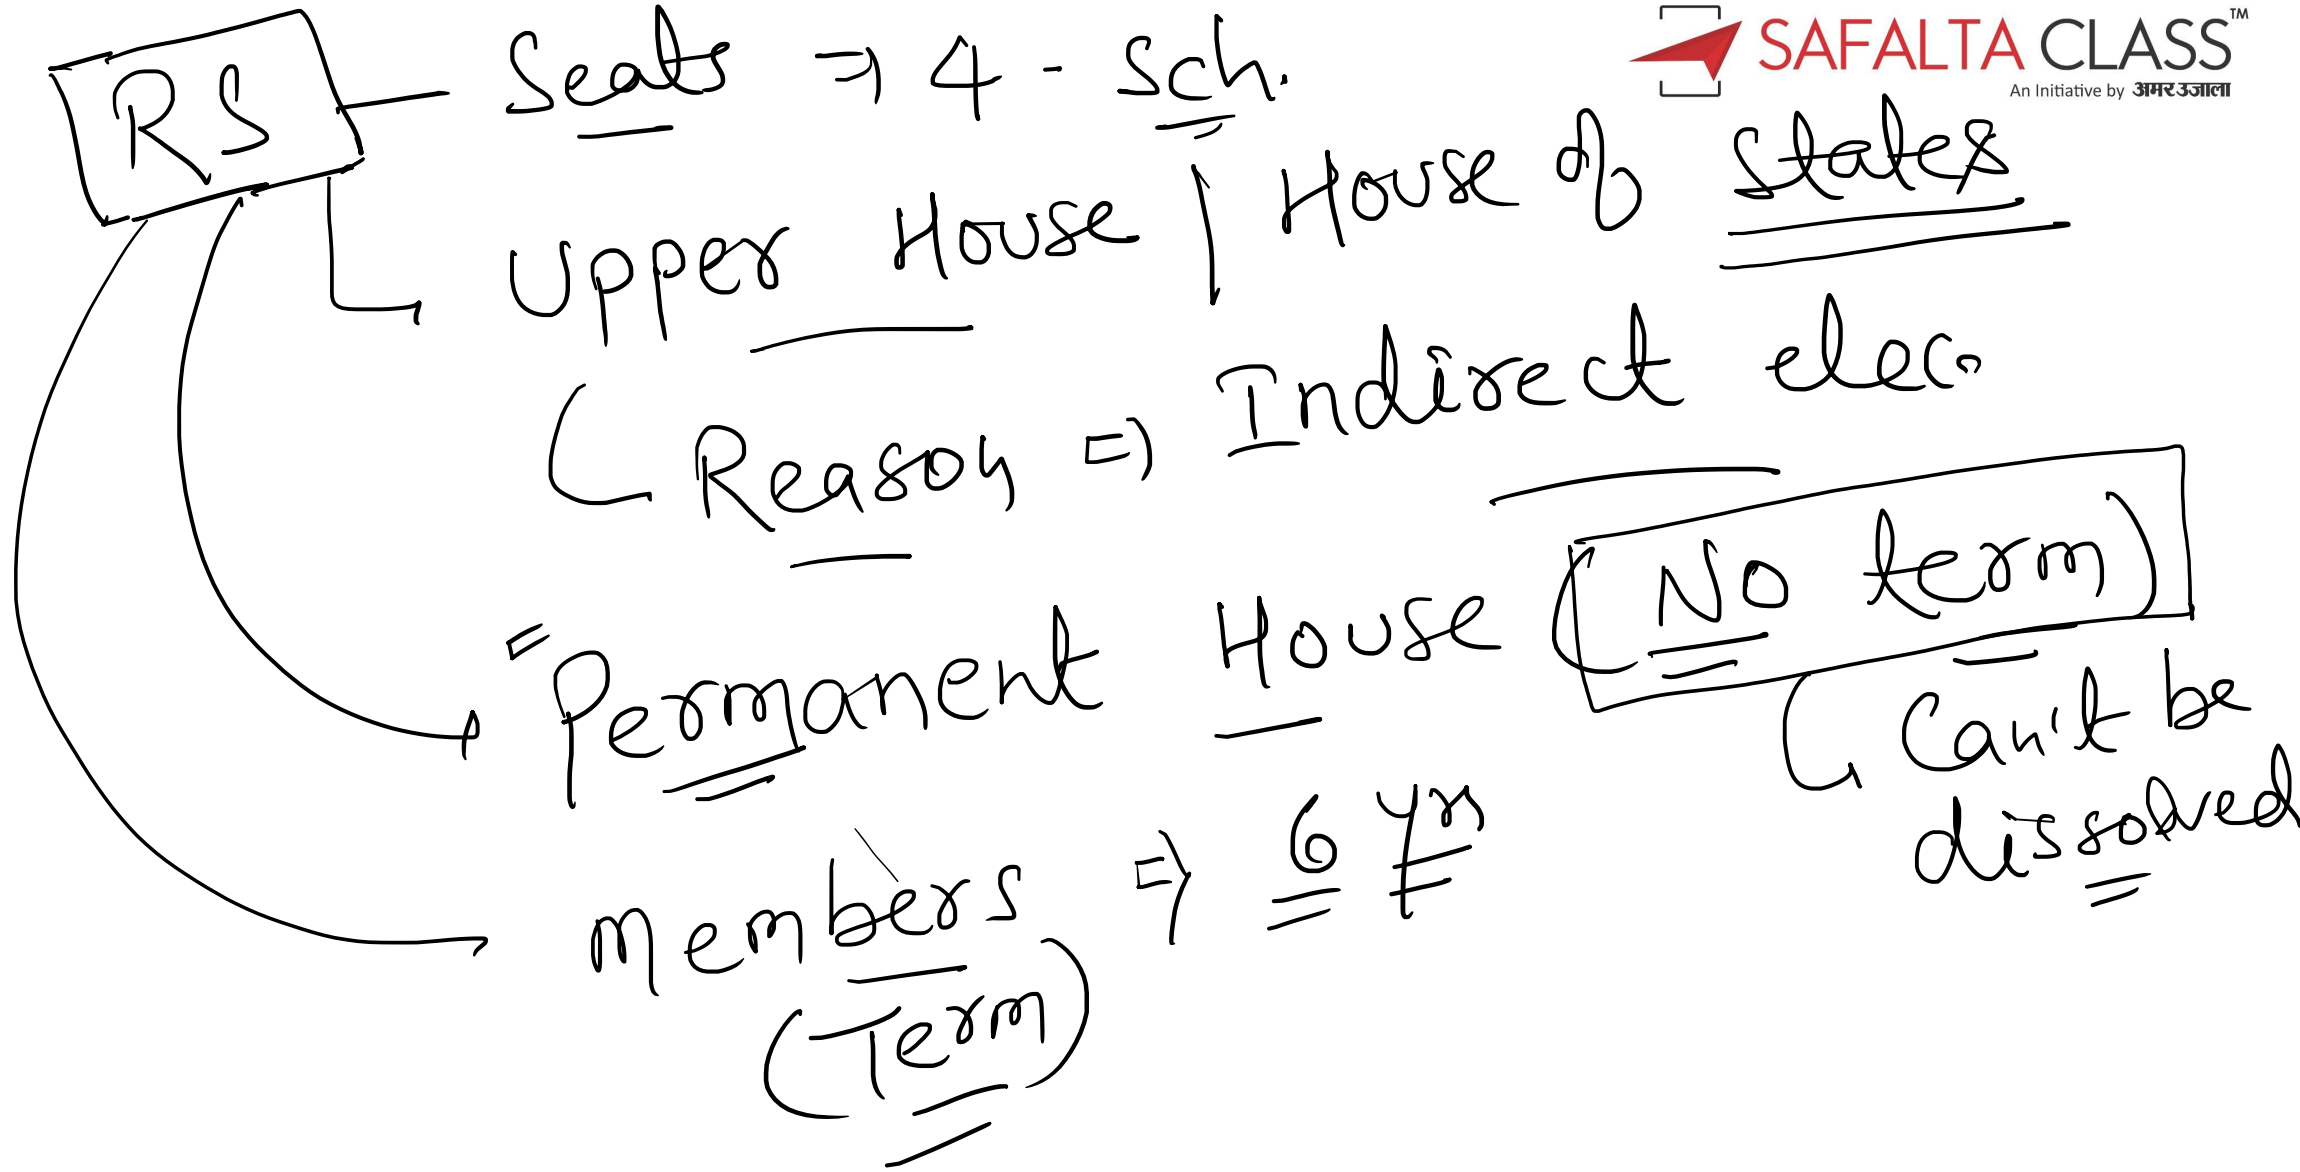 SAFALTA CLASS™
An Initiative by अमर उजाला
RS
Seats ⇒ 4 - Sch.
Upper House | House of States
Reason ⇒ Indirect elec.
Permanent House (No term)
Can't be
dissolved
Members ⇒ 6 yrs
(Term)